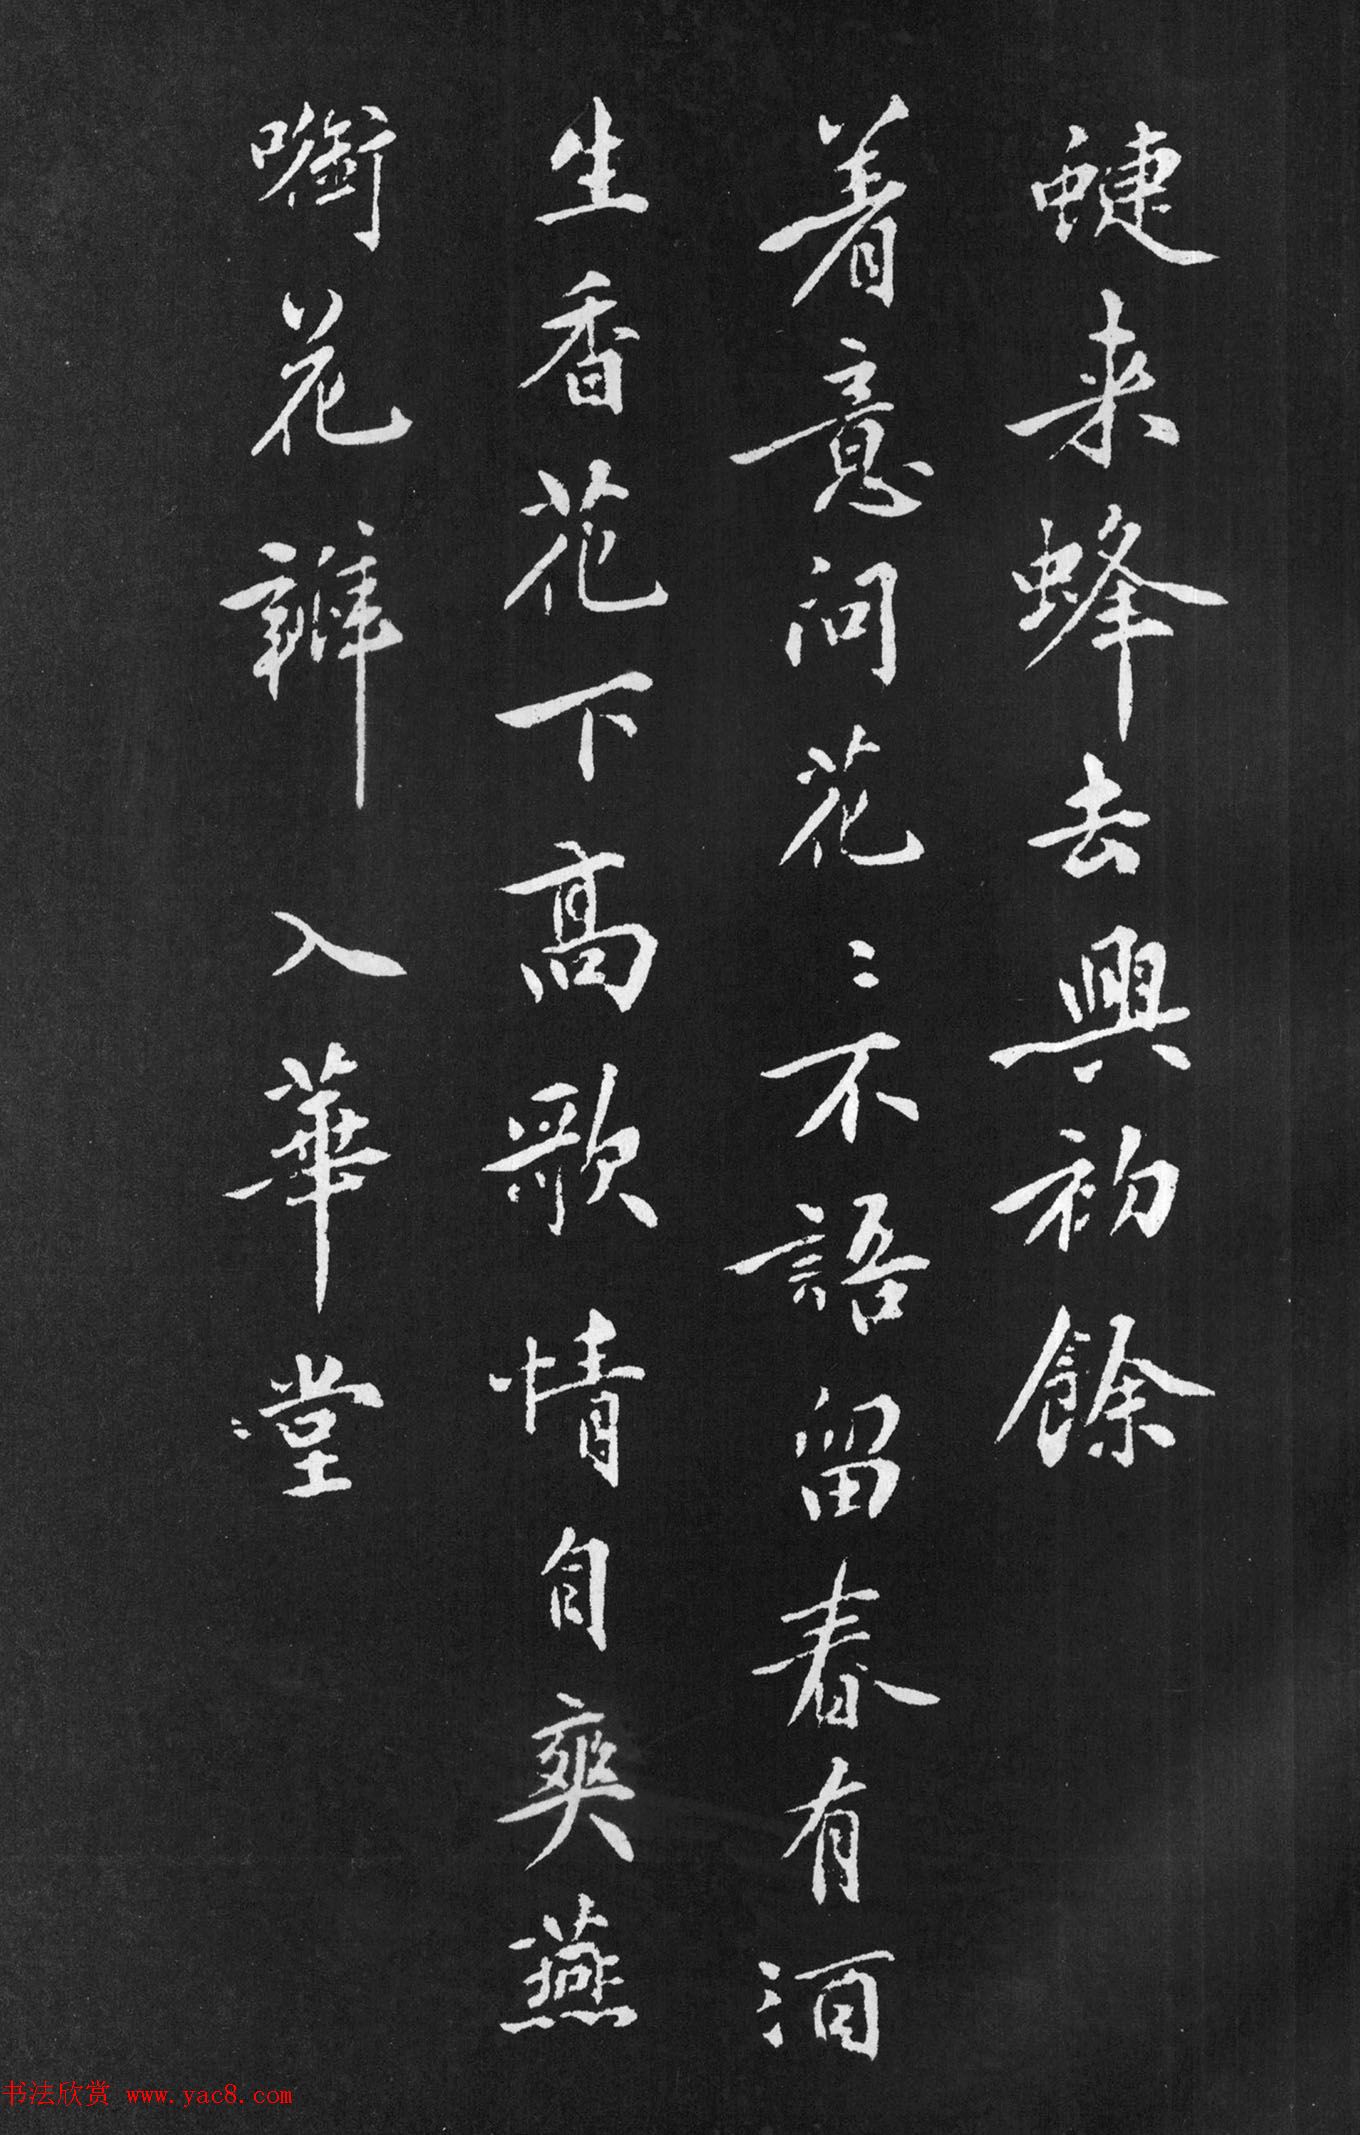 蜨来蜂去興初餘
着意问花〻不語留春有酒
生香花下高歌情自爽燕
㘅花瓣入華堂
书法欣赏 www.yac8.com